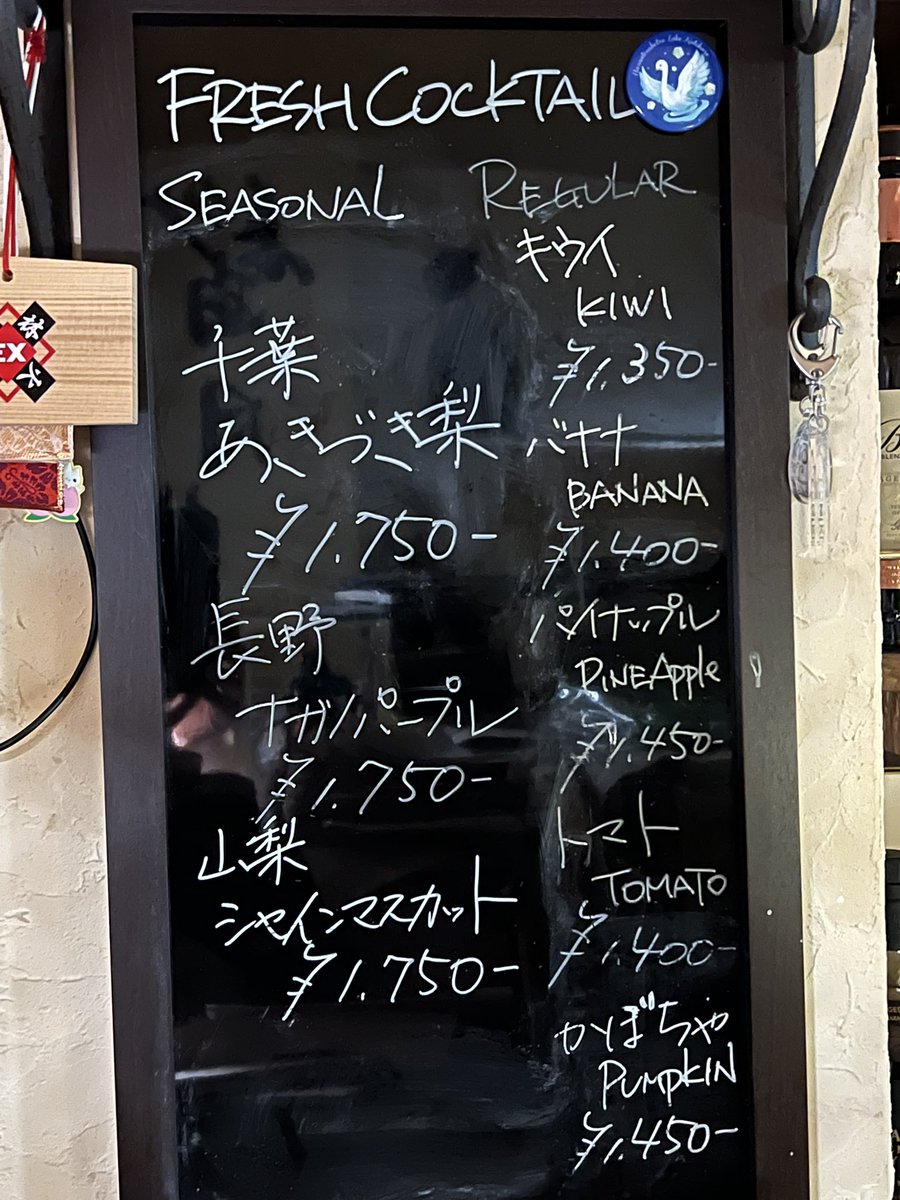 FRESH COCKTAIL
SEASONAL
千葉
あきづき梨
¥1.750-
長野
ナガノパープル
¥1.750-
山梨
シャインマスカット
¥1.750-
REGULAR
キウイ
KIWI
¥1.350-
バナナ
BANANA
¥1.400-
パイナップル
PINEApple
¥1.450-
トマト
TOMATO
¥1.400-
かぼちゃ
PUMPKIN
¥1.450-
EX